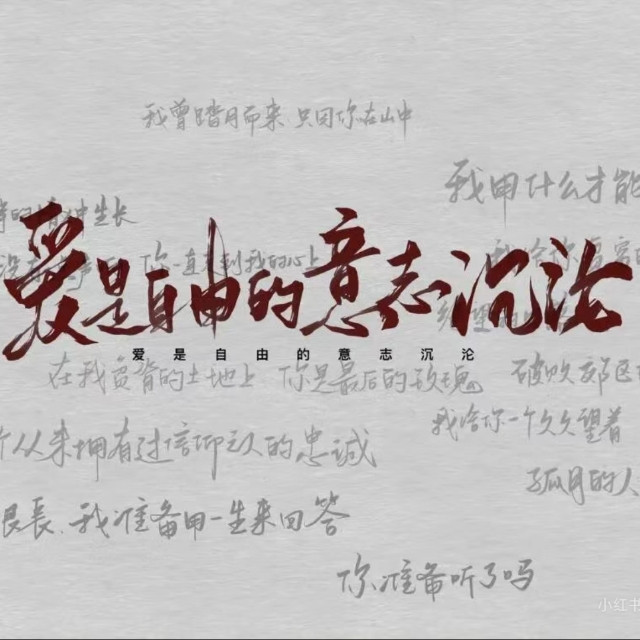 我曾踏月而来 只因你在山中
我用什么才能
生长
你一直到我的心上
爱是自由的意志沉沦
爱是自由的意志沉沦
在我贫瘠的土地上 你是最后的玫瑰
破败郊区
我给你一个久久望着
个从来拥有过信仰之人的忠诚
孤月的人
很长,我准备用一生来回答
你准备听了吗
小红书